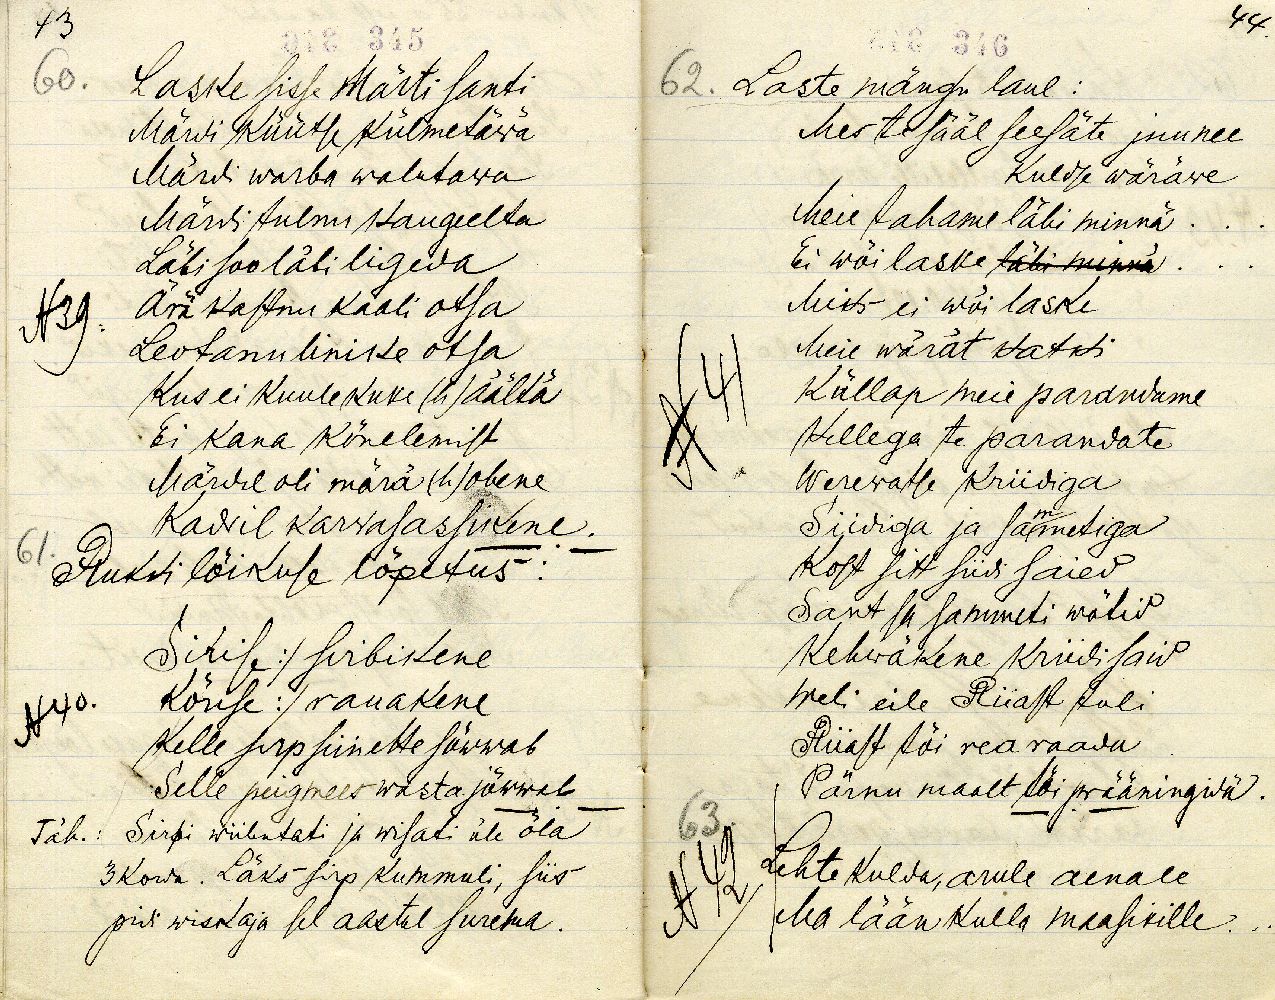 43
345
60. Laske sisse Märti santi
Märdi küütse külmetäwä
Märdi warba walutawa
Märdi tulnu kaugeelta
Läbi soo läbi ligeda
N 39. Ärä kastnu kaali otsa
Leotanu liniske otsa
Kus ei kuule kuke (h)äältä
Ei kana kõnelemist
Märdil oli märä (h)obene
Kadril karwasassikene.
61. Rukki lõikuse lõpetus:
Sirise :/ sirbikene
N 40. Kõrise :/ rauakene
Kelle sirp siinette jõwwab
Selle peigmees wasta jõwwab
Täh.: Sirpi wiibutati ja wisati üle õla
3 korda. Läks sirp kummuli, siis
pidi wiskaja sel aastal surema.
44.
346
62. Laste mängu laul:
Mes te sääl seesäte juunee
Kuldse wäräwe
Meie tahame läbi minnä . . .
Ei wõi laske läbi minnä . . .
Miits ei wõi laske
Meie wärät katki
N 41. Küllap meie parandame
Kellega te parandate
Werewatse kriidiga
Siidiga ja sammetiga
Kost sitt siidi saied
Sant sa sammeti wõtid
Kehwäkene kriidi said
Weli eile Riiast tuli
Riiast tõi rea raada
Pärnu maalt tõi prääningidä.
63.
N 42 Lehte kulda, arule aenale
Ma lään kulla maasikille . . .